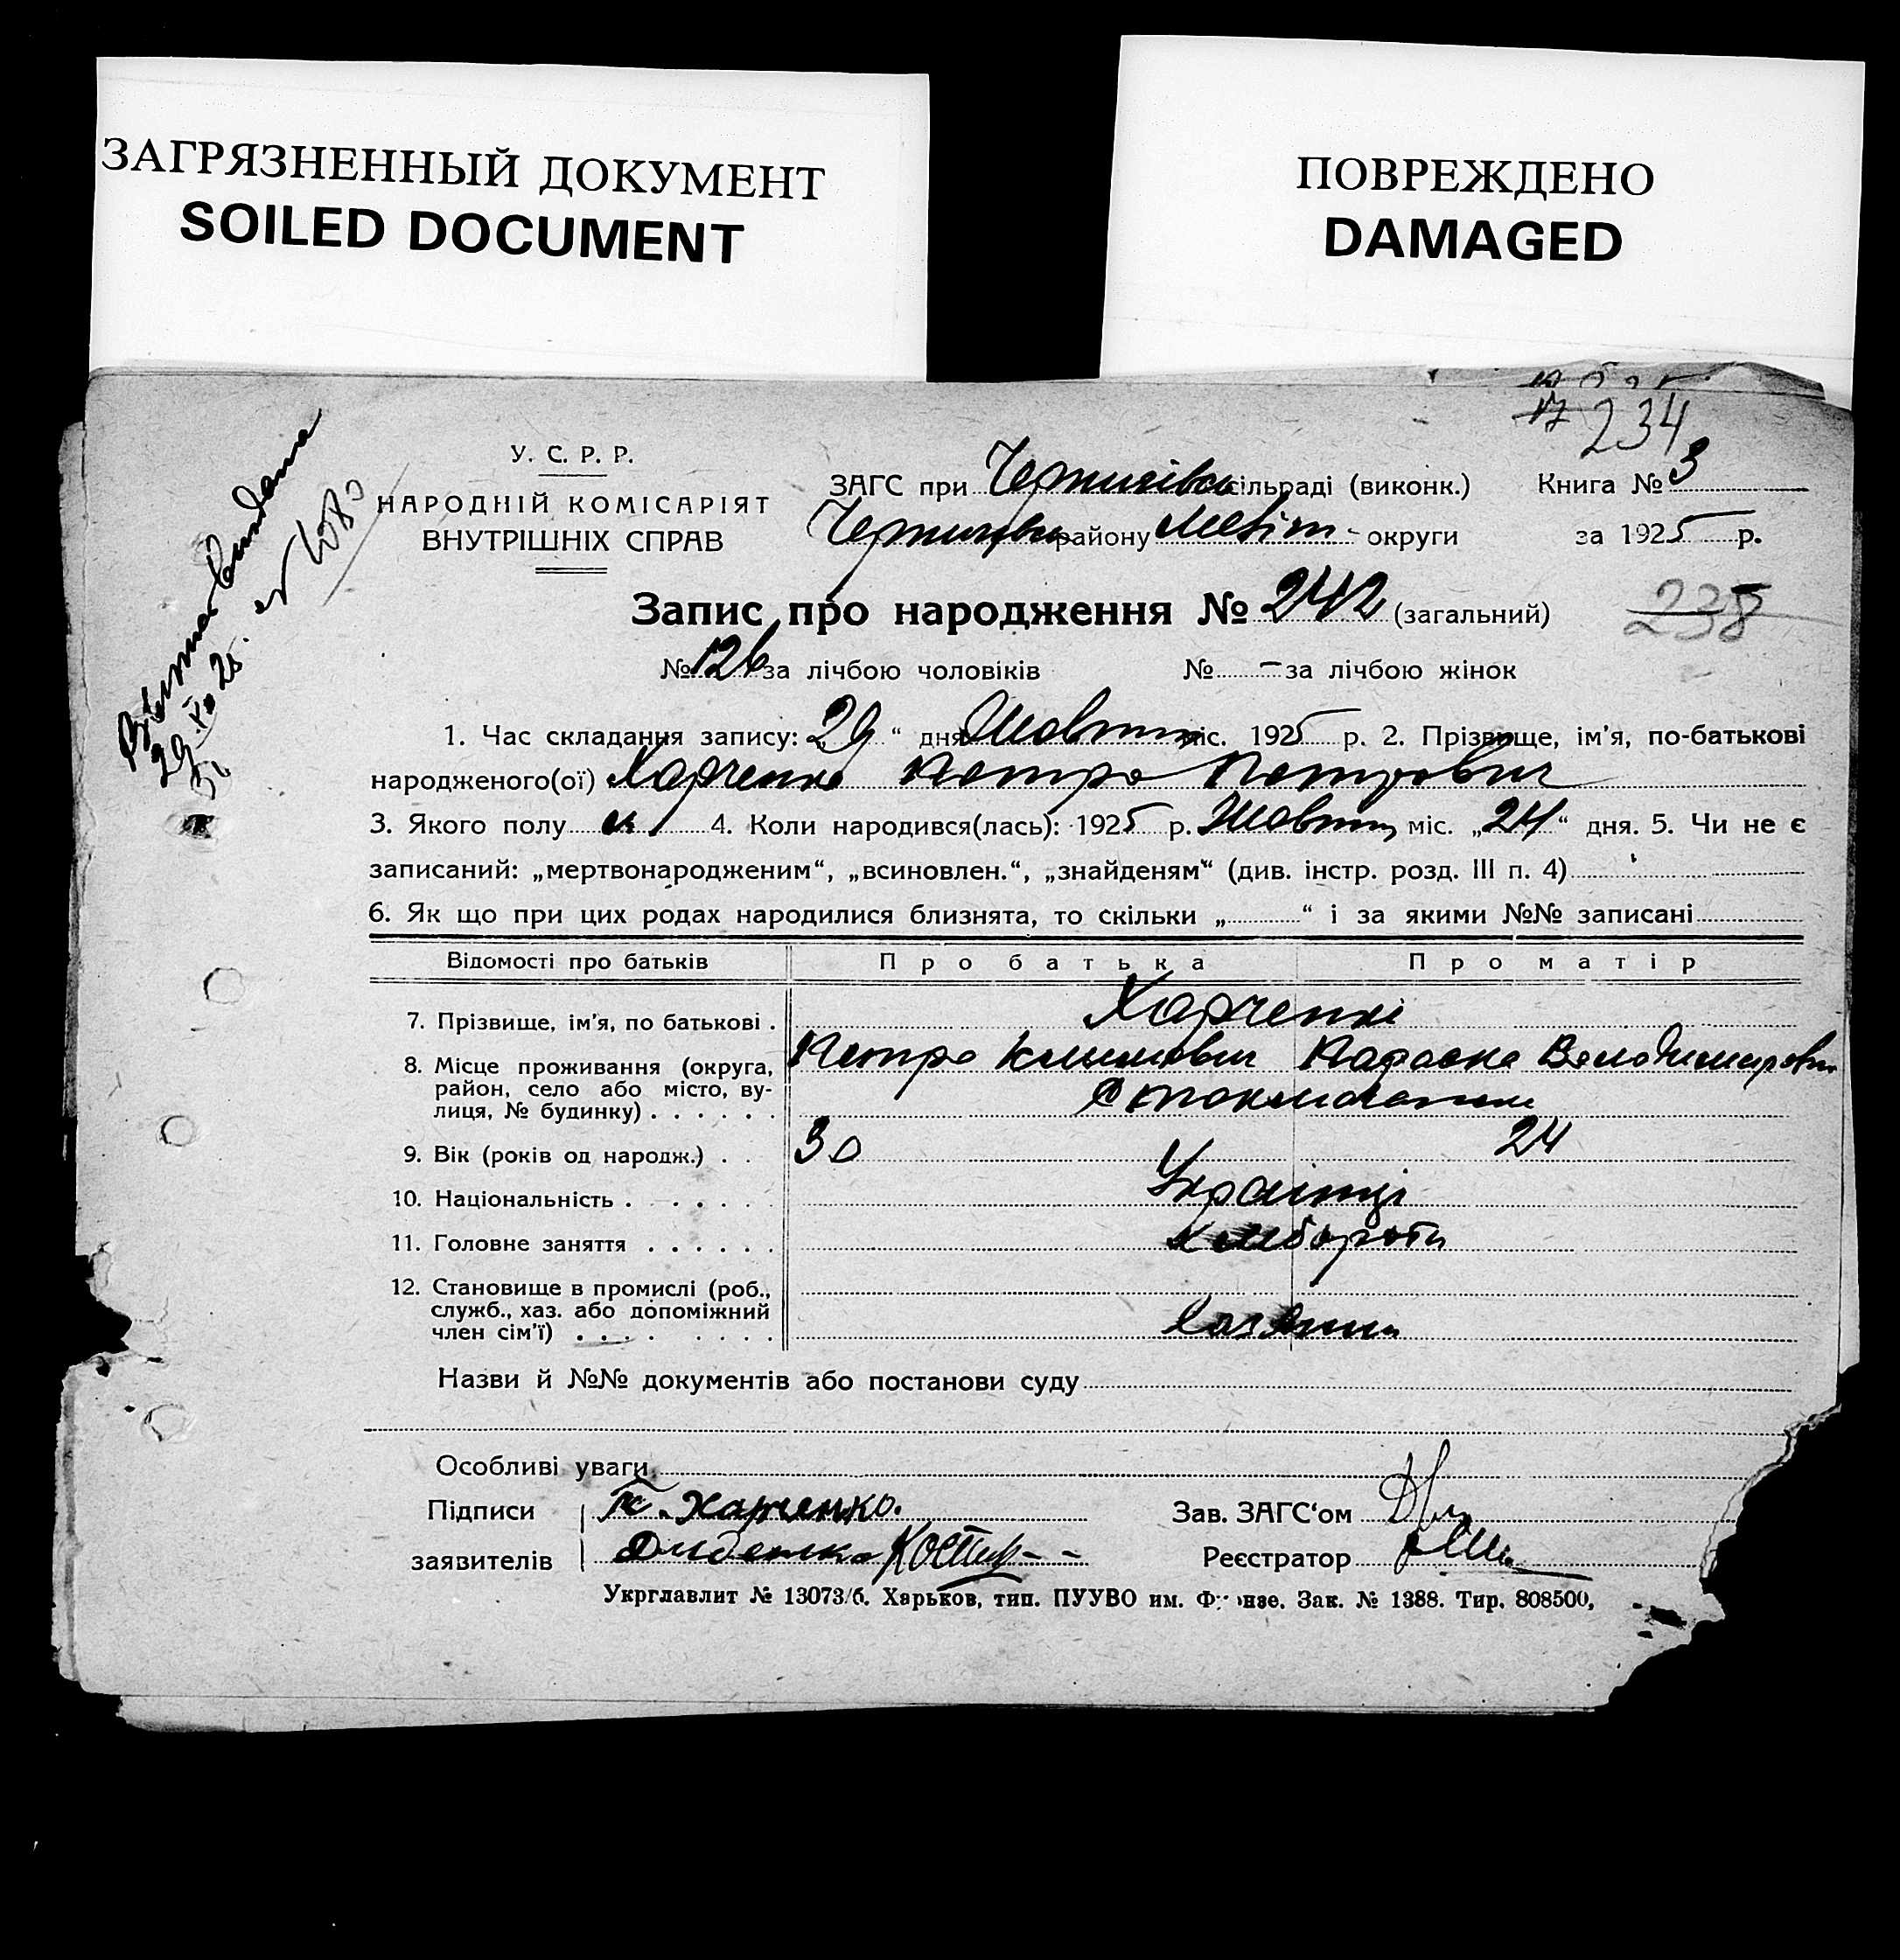 ЗАГРЯЗНЕННЫЙ ДОКУМЕНТ
SOILED DOCUMENT
ПОВРЕЖДЕНО
DAMAGED
17 234
У. С. Р. Р.
НАРОДНІЙ КОМІСАРІЯТ
ВНУТРІШНІХ СПРАВ
ЗАГС при сільраді (виконк.) Книга № 3
району Меліт - округи за 1925 р.
Запис про народження № 242 (загальний)
235
№ 126 за лічбою чоловіків № — за лічбою жінок
1. Час складання запису: „29“ дня Жовтня міс. 1925 р. 2. Прізвище, ім'я, по-батькові
народженого(ої) Харченко Петро Петрович
3. Якого полу ч 4. Коли народився(лась): 1925 р. Жовтня міс. „24“ дня. 5. Чи не є
записаний: „мертвонародженим“, „всиновлен.“, „знайденям“ (див. інстр. розд. III п. 4)
6. Як що при цих родах народилися близнята, то скільки „ “ і за якими №№ записані
Відомості про батьків Про батька Про матір
7. Прізвище, ім'я, по батькові . Харченкі
8. Місце проживання (округа, Петро Климович Параска Володимировн
район, село або місто, ву-
лиця, № будинку) . . . . . .
9. Вік (років од народж.) . . 30 24
10. Національність . . . . . . Українці
11. Головне заняття . . . . . . хлібороби
12. Становище в промислі (роб.,
служб., хаз. або допоміжний
член сім'ї) . . . . . . . . Хазяини
Назви й №№ документів або постанови суду
Особливі уваги
Підписи П. Харченко. Зав. ЗАГС'ом
заявителів Реєстратор
Укрглавлит № 13073/б. Харьков, тип. ПУУВО им. Фрунзе. Зак. № 1388. Тир. 808500,